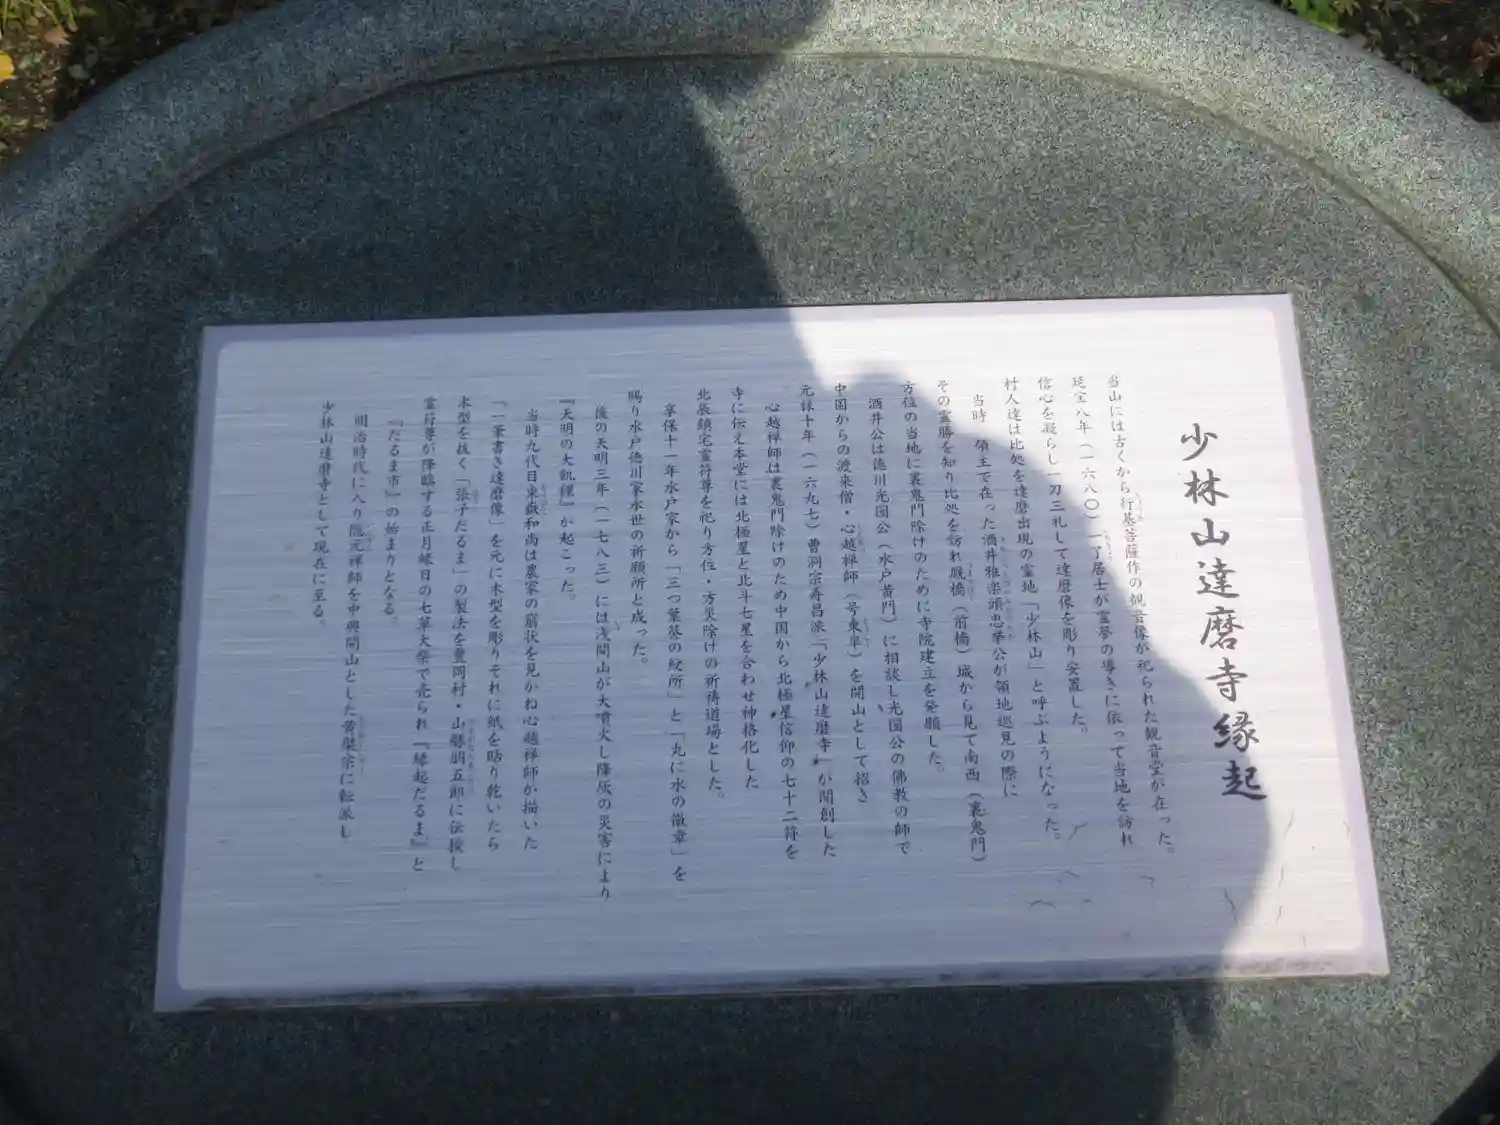 少林山達磨寺縁起
当山には古くから行基菩薩作の観音像が祀られた観音堂が在った。
延宝八年（一六八〇）一了居士が霊夢の導きに依って当地を訪れ
信心を凝らし一刀三礼して達磨像を彫り安置した。
村人達は此処を達磨出現の霊地「少林山」と呼ぶようになった。
当時、領主で在った酒井雅楽頭忠挙公が領地巡見の際に
その霊勝を知り此処を訪れ厩橋（前橋）城から見て南西（裏鬼門）
方位の当地に裏鬼門除けのために寺院建立を発願した。
酒井公は徳川光圀公（水戸黄門）に相談し光圀公の佛教の師で
中国からの渡来僧・心越禅師（号東皐）を開山として招き
元禄十年（一六九七）曹洞宗寿昌派「少林山達磨寺」が開創した
心越禅師は裏鬼門除けのため中国から北極星信仰の七十二符を
寺に伝え本堂には北極星と北斗七星を合わせ神格化した
北辰鎮宅霊符尊を祀り方位・方災除けの祈祷道場とした。
享保十一年水戸家から「三つ葉葵の紋所」と「丸に水の徽章」を
賜り水戸徳川家永世の祈願所と成った。
後の天明三年（一七八三）には浅間山が大噴火し降灰の災害により
『天明の大飢饉』が起こった。
当時九代目東嶽和尚は農家の窮状を見かね心越禅師が描いた
「一筆書き達磨像」を元に木型を彫りそれに紙を貼り乾いたら
木型を抜く「張子だるま」の製法を豊岡村・山縣朋五郎に伝授し
霊符尊が降臨する正月縁日の七草大祭で売られ『縁起だるま』と
『だるま市』の始まりとなる
明治時代に入り隠元禅師を中興開山とした黄檗宗に転派し
少林山達磨寺として現在に至る。